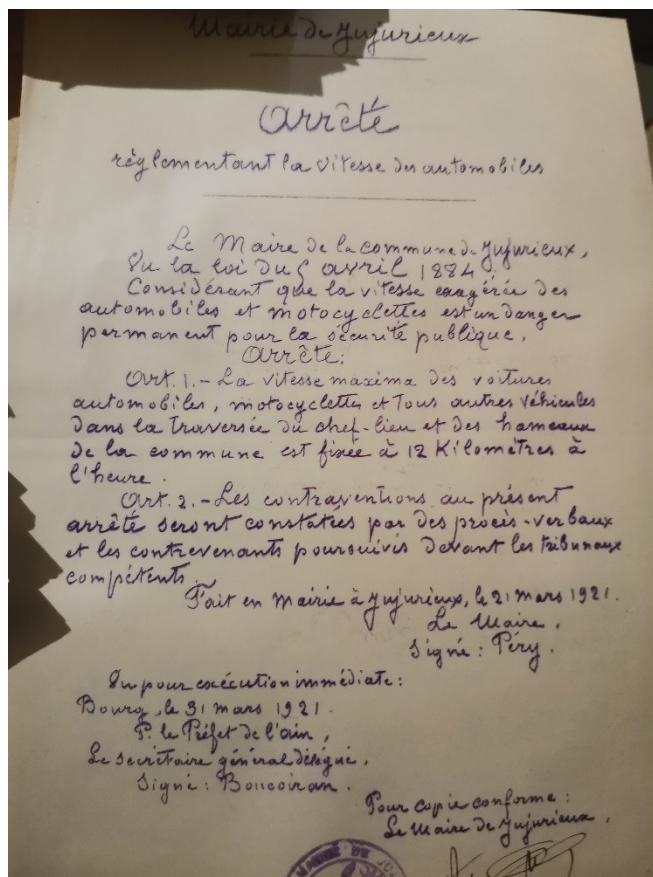 Mairie de Jujurieux
Arrêté
règlementant la vitesse des automobiles
Le Maire de la commune de Jujurieux,
Vu la loi du 5 avril 1884.
Considérant que la vitesse exagérée des
automobiles et motocyclettes est un danger
permanent pour la sécurité publique,
Arrête:
Art. 1.- La vitesse maxima des voitures
automobiles, motocyclettes et tous autres véhicules
dans la traversée du chef-lieu et des hameaux
de la commune est fixée à 12 Kilomètres à
l'heure.
Art. 2.- Les contraventions au présent
arrêté seront constatées par des procès-verbaux
et les contrevenants poursuivis devant les tribunaux
compétents.
Fait en Mairie à Jujurieux, le 21 mars 1921.
Le Maire,
Signé: Péry.
Vu pour exécution immédiate:
Bourg, le 31 mars 1921.
P. le Préfet de l'ain,
Le secrétaire général délégué,
Signé: Boucoiran.
Pour copie conforme:
Le Maire de Jujurieux,
MAIRIE DE